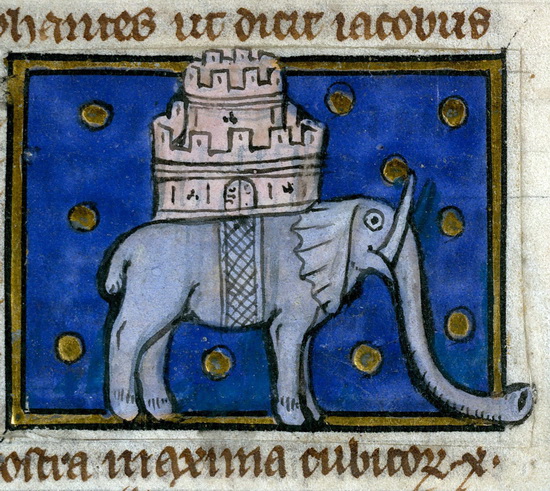 phantes ut dicit iacobus
ostra maxima cubitoꝝ·x·